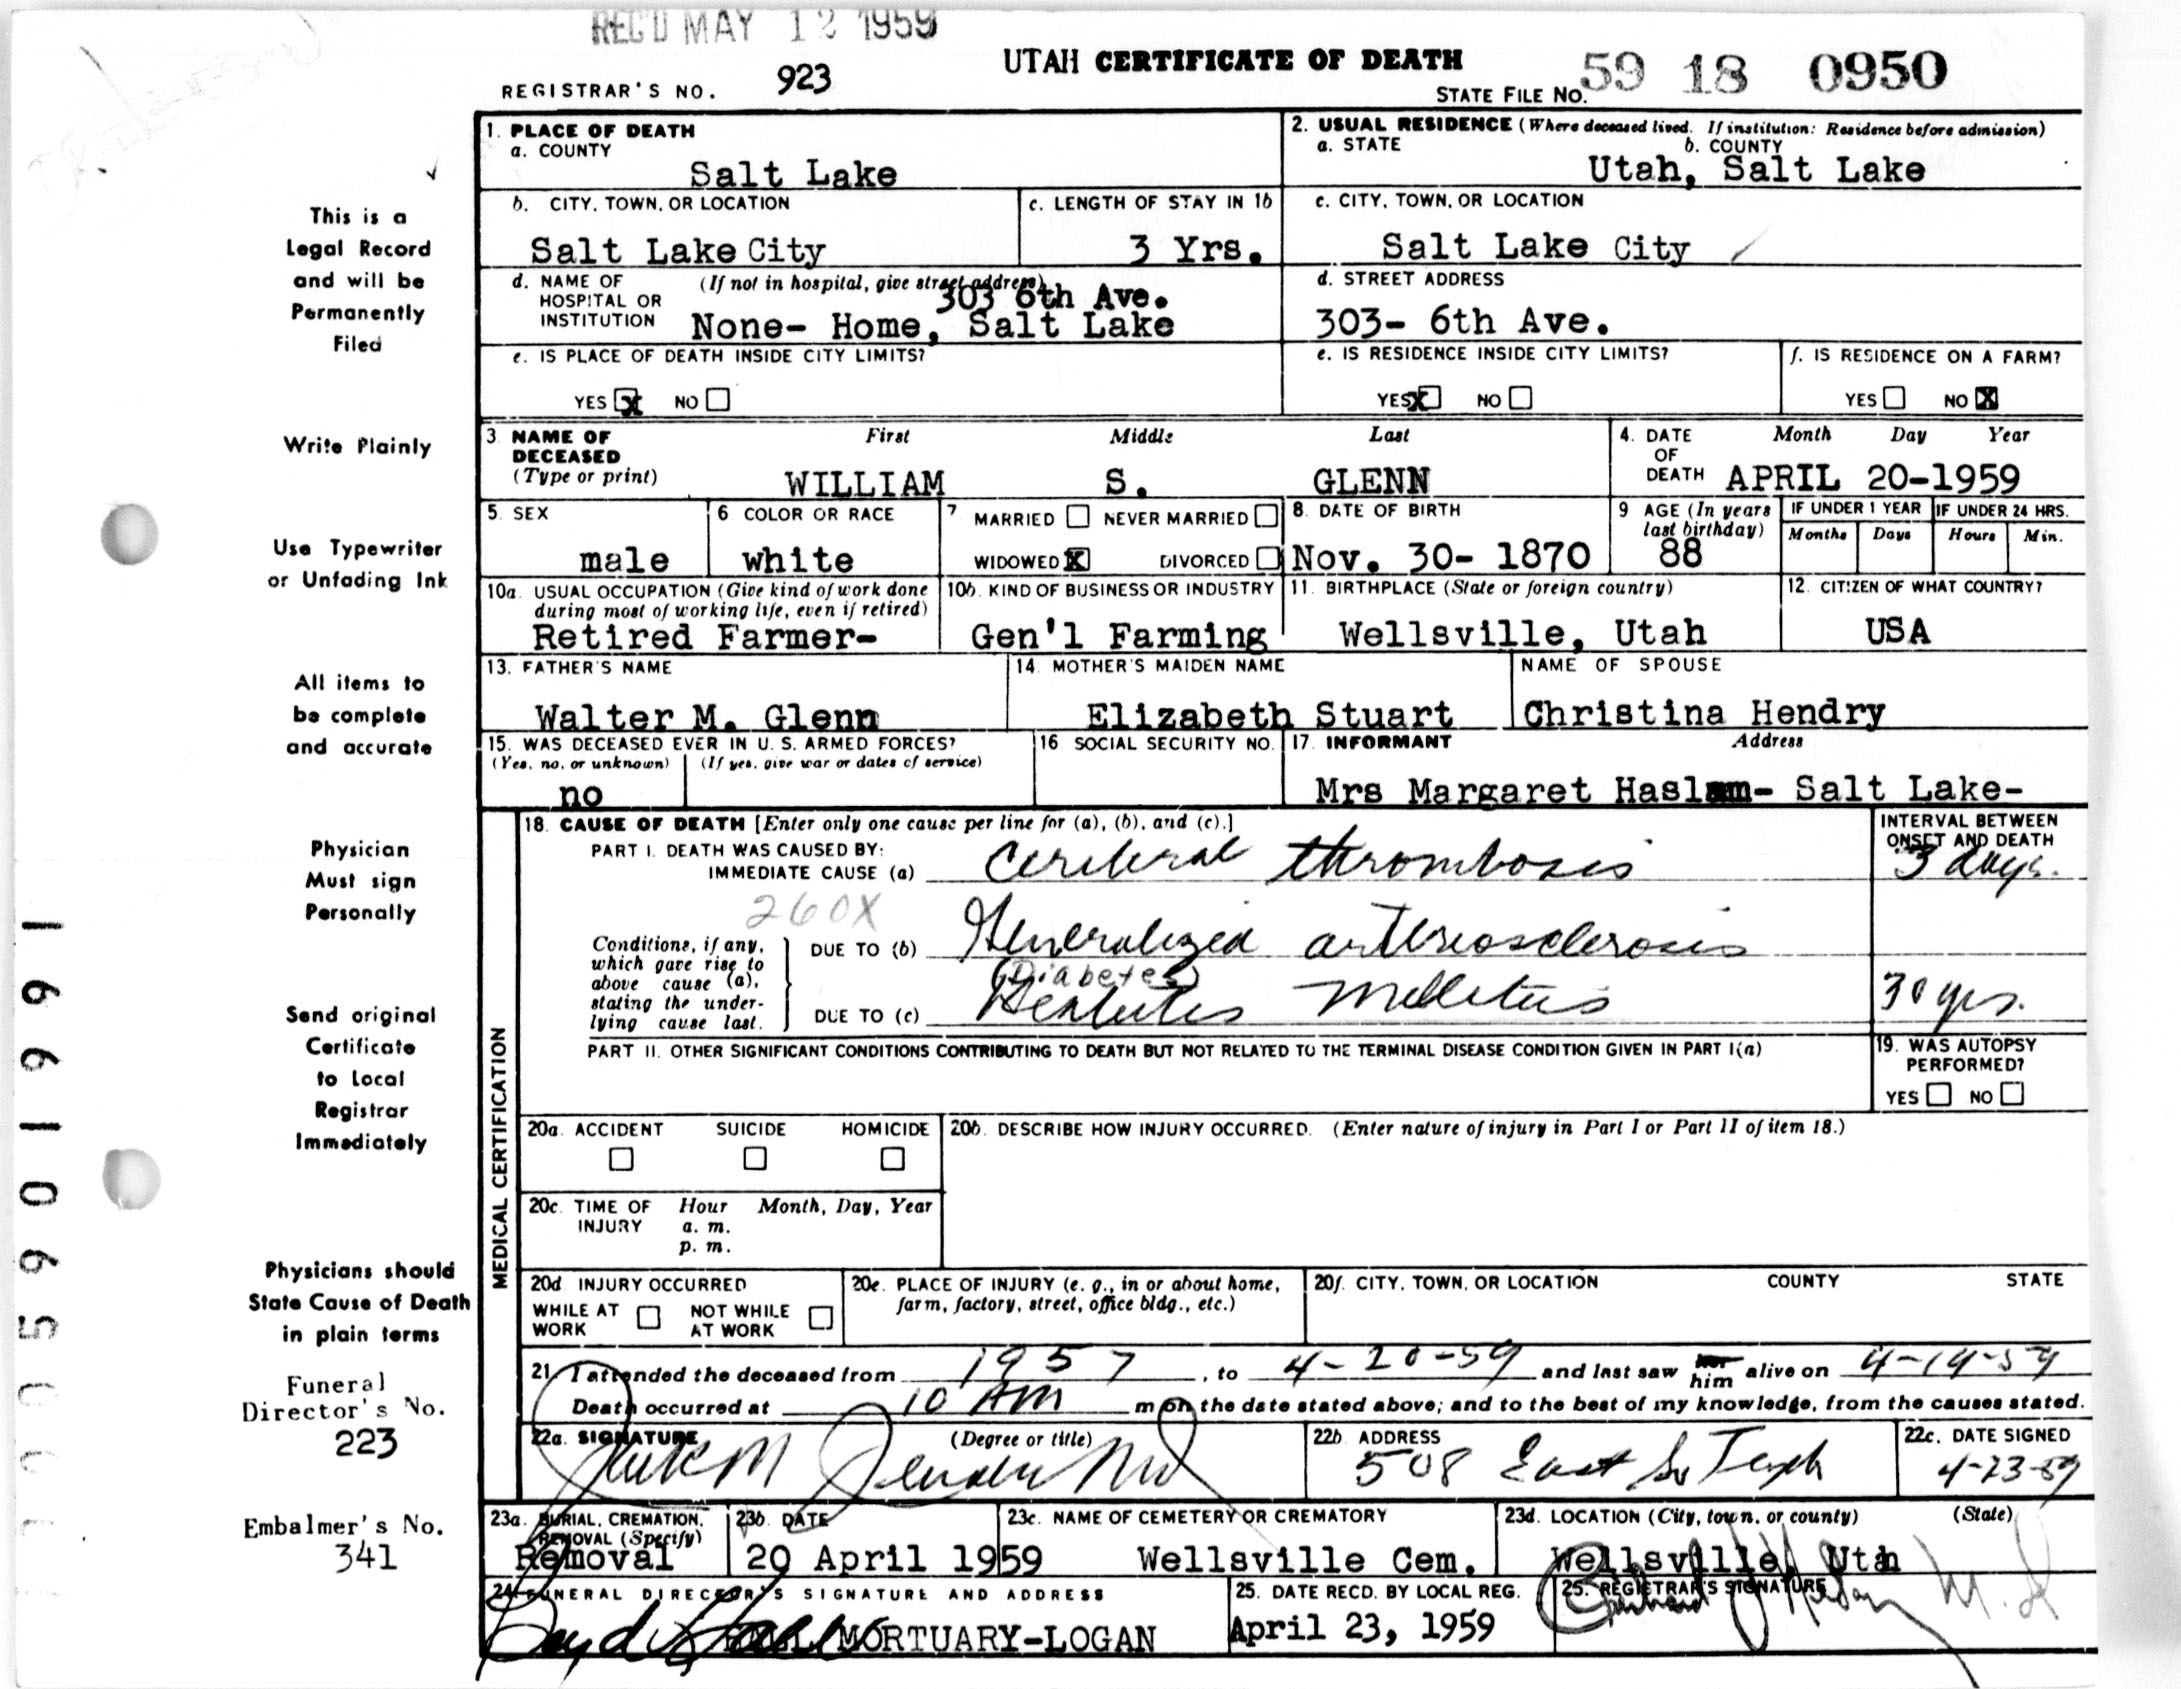 REC'D MAY 12 1959
UTAH CERTIFICATE OF DEATH
REGISTRAR'S NO. 923
STATE FILE NO. 59 18 0950
1. PLACE OF DEATH
a. COUNTY
Salt Lake
2. USUAL RESIDENCE (Where deceased lived. If institution: Residence before admission)
a. STATE b. COUNTY
Utah, Salt Lake
b. CITY, TOWN, OR LOCATION
Salt Lake City
c. LENGTH OF STAY IN 1b
3 Yrs.
c. CITY, TOWN, OR LOCATION
Salt Lake City
d. NAME OF HOSPITAL OR INSTITUTION
(If not in hospital, give street address)
303 6th Ave.
None- Home, Salt Lake
d. STREET ADDRESS
303- 6th Ave.
e. IS PLACE OF DEATH INSIDE CITY LIMITS?
YES X NO
e. IS RESIDENCE INSIDE CITY LIMITS?
YES X NO
f. IS RESIDENCE ON A FARM?
YES NO X
3. NAME OF DECEASED
(Type or print)
First Middle Last
WILLIAM S. GLENN
4. DATE OF DEATH
Month Day Year
APRIL 20-1959
5. SEX
male
6. COLOR OR RACE
white
7 MARRIED NEVER MARRIED
WIDOWED X DIVORCED
8. DATE OF BIRTH
Nov. 30- 1870
9 AGE (In years last birthday)
88
IF UNDER 1 YEAR
Months Days
IF UNDER 24 HRS.
Hours Min.
10a. USUAL OCCUPATION (Give kind of work done during most of working life, even if retired)
Retired Farmer-
10b. KIND OF BUSINESS OR INDUSTRY
Gen'l Farming
11. BIRTHPLACE (State or foreign country)
Wellsville, Utah
12. CITIZEN OF WHAT COUNTRY?
USA
13. FATHER'S NAME
Walter M. Glenn
14. MOTHER'S MAIDEN NAME
Elizabeth Stuart
NAME OF SPOUSE
Christina Hendry
15. WAS DECEASED EVER IN U. S. ARMED FORCES?
(Yes, no, or unknown) (If yes, give war or dates of service)
no
16. SOCIAL SECURITY NO.
17. INFORMANT Address
Mrs Margaret Haslam- Salt Lake-
MEDICAL CERTIFICATION
18. CAUSE OF DEATH [Enter only one cause per line for (a), (b), and (c).]
INTERVAL BETWEEN ONSET AND DEATH
PART I. DEATH WAS CAUSED BY:
IMMEDIATE CAUSE (a) Cerebral thrombosis
3 days.
260X
Conditions, if any, which gave rise to above cause (a), stating the underlying cause last.
DUE TO (b) Generalized arteriosclerosis
(Diabetes)
DUE TO (c) Diabetes Mellitus
30 yrs.
PART II. OTHER SIGNIFICANT CONDITIONS CONTRIBUTING TO DEATH BUT NOT RELATED TO THE TERMINAL DISEASE CONDITION GIVEN IN PART I(a)
19. WAS AUTOPSY PERFORMED?
YES NO
20a. ACCIDENT SUICIDE HOMICIDE
20b. DESCRIBE HOW INJURY OCCURRED. (Enter nature of injury in Part I or Part II of item 18.)
20c. TIME OF INJURY
Hour Month, Day, Year
a. m.
p. m.
20d INJURY OCCURRED
WHILE AT WORK NOT WHILE AT WORK
20e. PLACE OF INJURY (e. g., in or about home, farm, factory, street, office bldg., etc.)
20f. CITY, TOWN, OR LOCATION COUNTY STATE
21. I attended the deceased from 1957, to 4-20-59 and last saw her him alive on 4-19-59
Death occurred at 10 AM m on the date stated above; and to the best of my knowledge, from the causes stated.
22a. SIGNATURE (Degree or title)
22b. ADDRESS
508 East So Temple
22c. DATE SIGNED
4-23-59
23a. BURIAL, CREMATION, REMOVAL (Specify)
Removal
23b. DATE
20 April 1959
23c. NAME OF CEMETERY OR CREMATORY
Wellsville Cem.
23d. LOCATION (City, town, or county) (State)
Wellsville, Utah
24. FUNERAL DIRECTOR'S SIGNATURE AND ADDRESS
HALL MORTUARY-LOGAN
25. DATE RECD. BY LOCAL REG.
April 23, 1959
25. REGISTRAR'S SIGNATURE
This is a
Legal Record
and will be
Permanently
Filed
Write Plainly
Use Typewriter
or Unfading Ink
All items to
be complete
and accurate
Physician
Must sign
Personally
Send original
Certificate
to Local
Registrar
Immediately
Physicians should
State Cause of Death
in plain terms
Funeral
Director's No.
223
Embalmer's No.
341